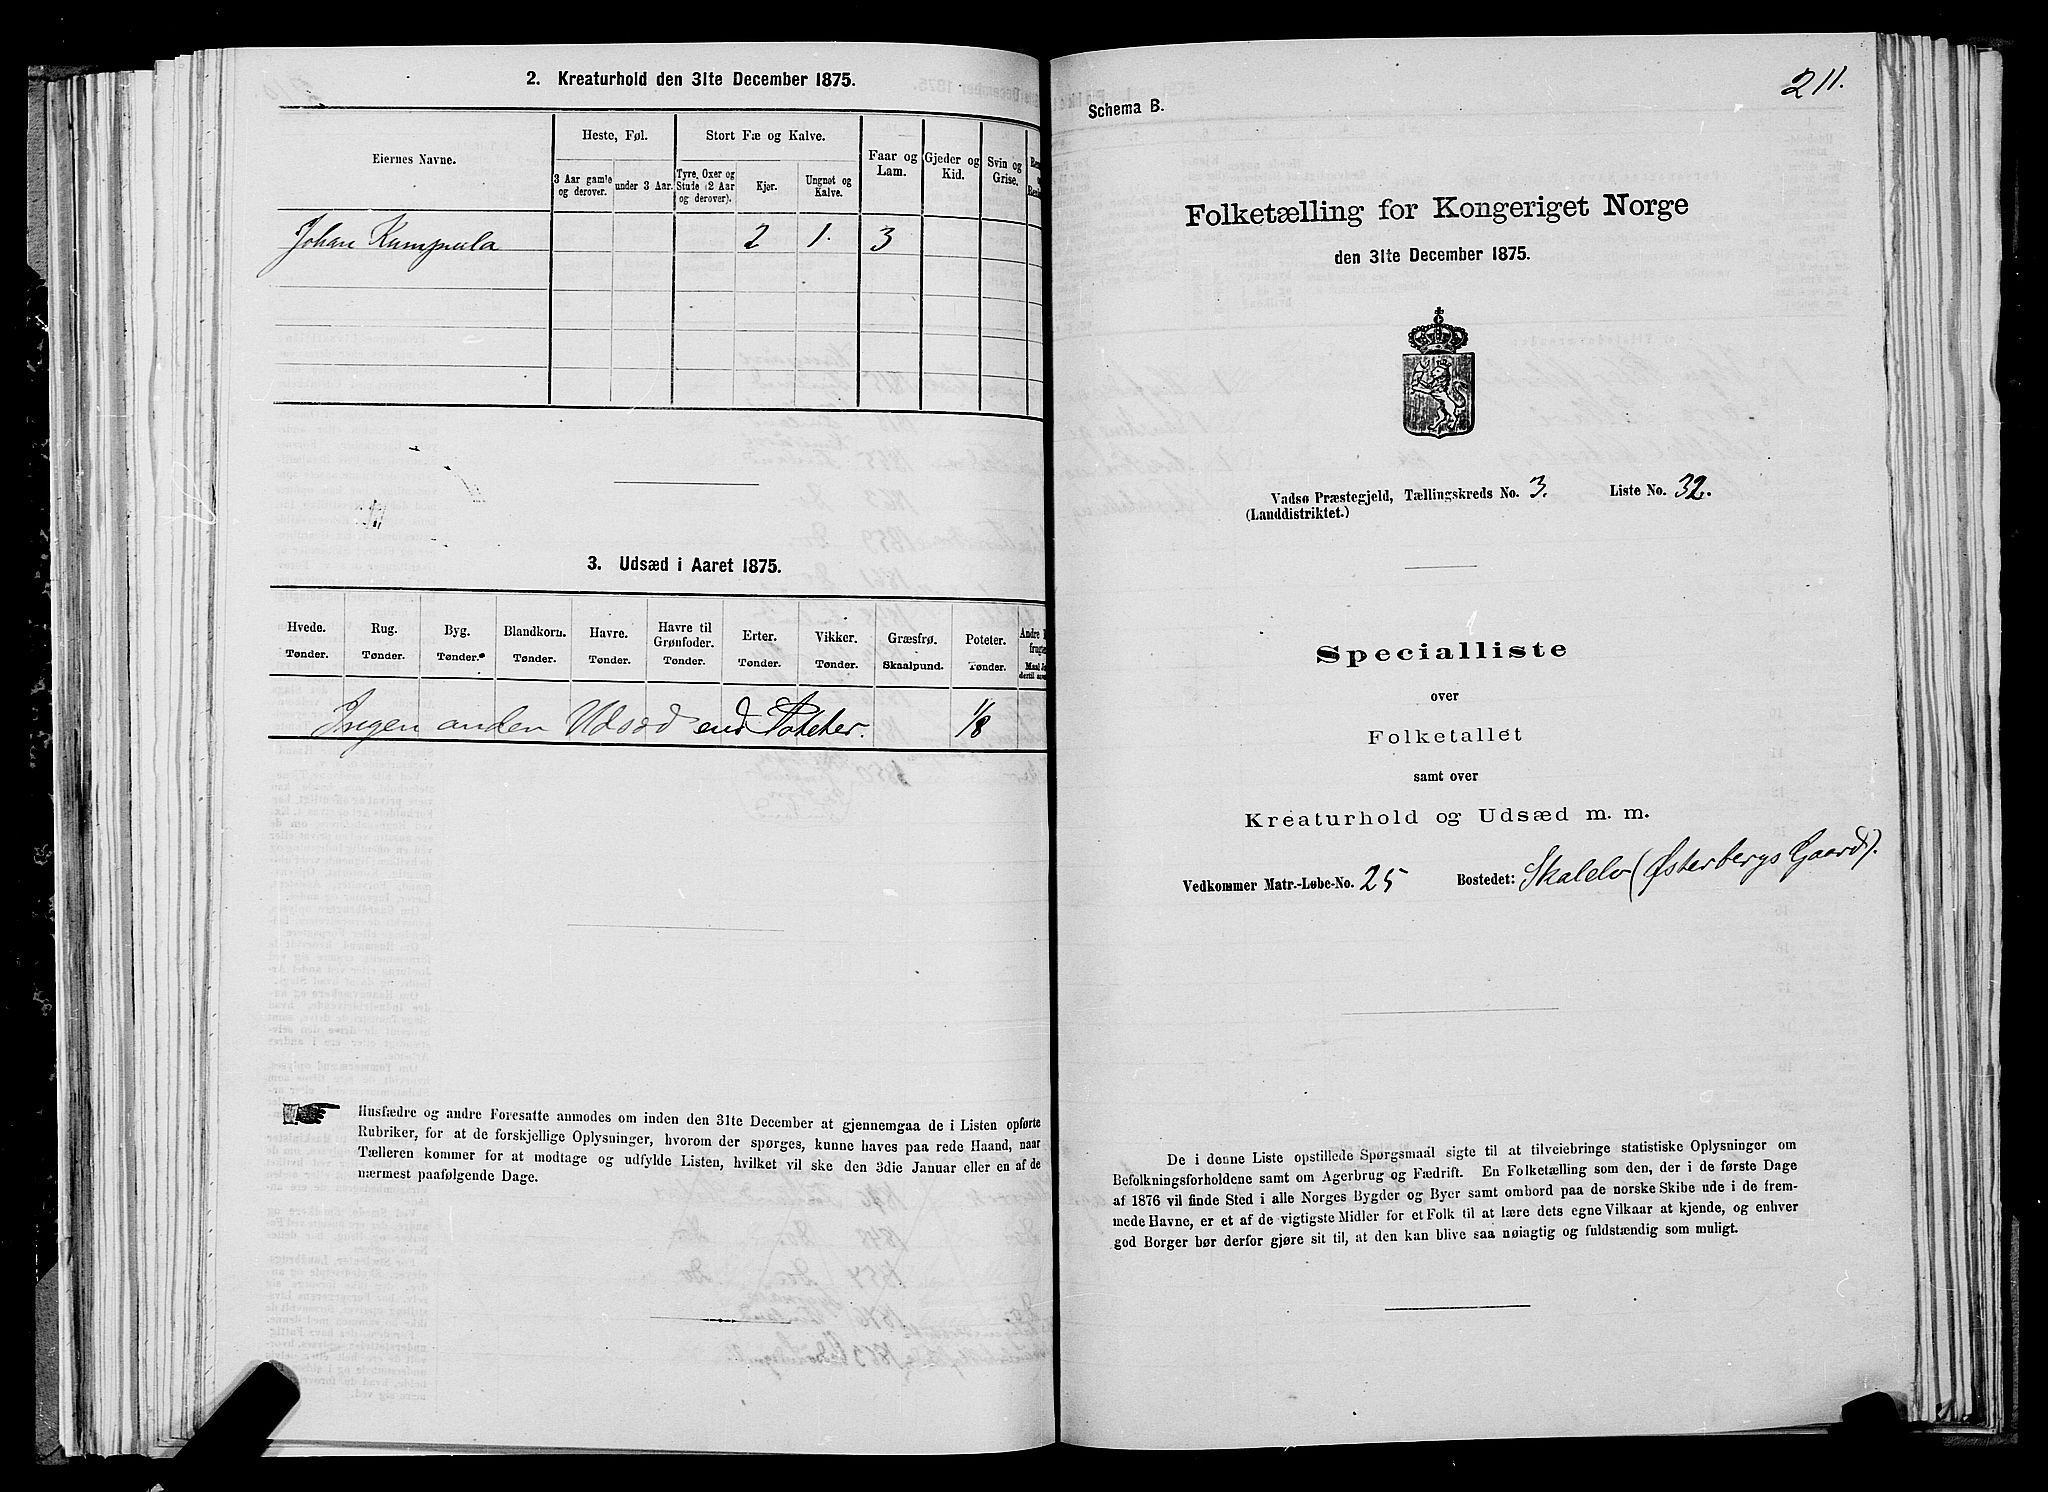 2. Kreaturhold den 31te December 1875.
Eiernes Navne.
Heste, Føl.
Stort Fæ og Kalve.
Faar og
Lam.
Gjeder og
Kid.
Svin og
Grise.
3 Aar gamle
og derover.
under 3 Aar.
Tyre, Oxer og
Stude (2 Aar
og derover).
Kjør.
Ungnøt og
Kalve.
Johan Kumpula 2 1. 3
3. Udsæd i Aaret 1875.
Hvede. Rug. Byg. Blandkorn. Havre. Havre til Grønfoder. Erter. Vikker. Græsfrø. Poteter. Andre
Tønder. Tønder. Tønder. Tønder. Tønder. Tønder. Tønder. Tønder. Skaalpund. Tønder.
Ingen anden Udsæd end Poteter. 1/8
Husfædre og andre Foresatte anmodes om inden den 31te December at gjennemgaa de i Listen opførte
Rubriker, for at de forskjellige Oplysninger, hvorom der spørges, kunne haves paa rede Haand, naar
Tælleren kommer for at modtage og udfylde Listen, hvilket vil ske den 3die Januar eller en af de
nærmest paafølgende Dage.
211.
Schema B.
Folketælling for Kongeriget Norge
den 31te December 1875.
Vadsø Præstegjeld, Tællingskreds No. 3. Liste No. 32.
(Landdistriktet.)
Specialliste
over
Folketallet
samt over
Kreaturhold og Udsæd m. m.
Vedkommer Matr.-Løbe-No. 25 Bostedet: Skalelv (Østerbergs Gaard).
De i denne Liste opstillede Spørgsmaal sigte til at tilveiebringe statistiske Oplysninger om
Befolkningsforholdene samt om Agerbrug og Fædrift. En Folketælling som den, der i de første Dage
af 1876 vil finde Sted i alle Norges Bygder og Byer samt ombord paa de norske Skibe ude i de frem-
mede Havne, er et af de vigtigste Midler for et Folk til at lære dets egne Vilkaar at kjende, og enhver
god Borger bør derfor gjøre sit til, at den kan blive saa nøiagtig og fuldstændig som muligt.